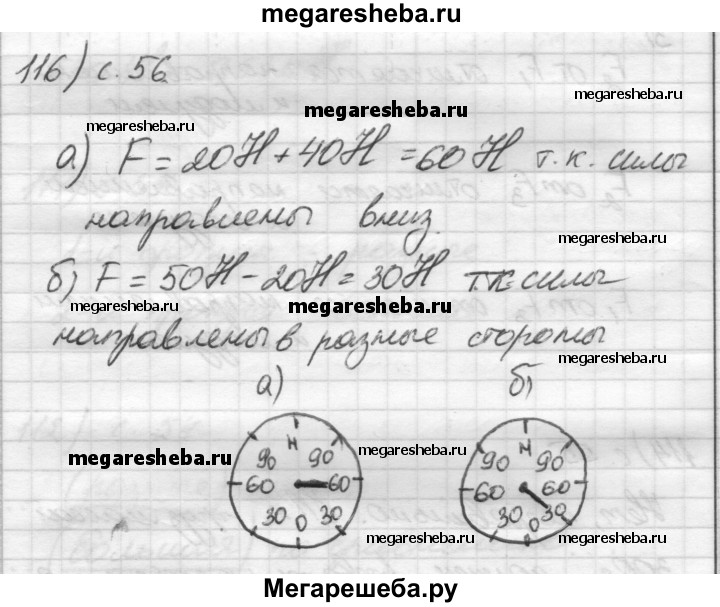 megaresheba.ru
116) с. 56
megaresheba.ru
megaresheba.ru
megaresheba.ru
а) F = 20Н + 40Н = 60Н т.к. силы
направлены вниз.
megaresheba.ru
б) F = 50Н - 20Н = 30Н т.к. силы
megaresheba.ru
направлены в разные стороны
megaresheba.ru
а) б)
Н N
90 90 90 90
megaresheba.ru
megaresheba.ru
60 60 60 60
30 30 30 30
0 0
megaresheba.ru
megaresheba.ru
Мегарешеба.ру